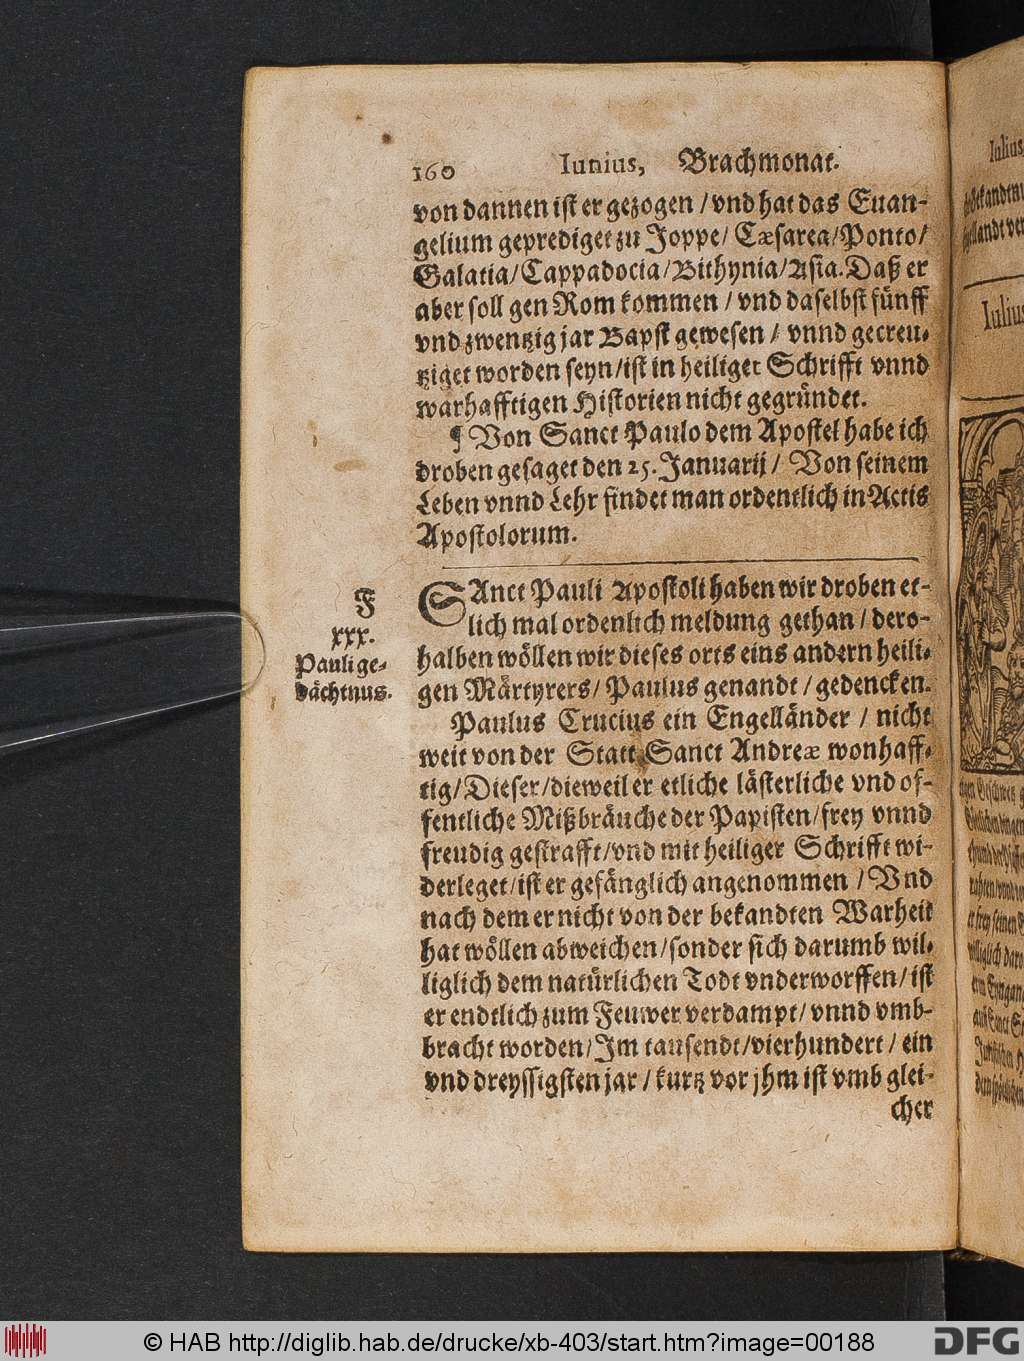 160 Iunius, Brachmonat.
von dannen ist er gezogen / vnd hat das Euan-
gelium geprediget zu Joppe / Cæsarea / Ponto /
Galatia / Cappadocia / Bithynia / Asia. Daß er
aber soll gen Rom kommen / vnd daselbst fünff
vnd zwentzig jar Bapst gewesen / vnnd gecreu-
tziget worden seyn / ist in heiliger Schrifft vnnd
warhafftigen Historien nicht gegründet.
¶ Von Sanct Paulo dem Apostel habe ich
droben gesaget den 25. Januarij / Von seinem
Leben vnnd Lehr findet man ordentlich in Actis
Apostolorum.
F
xxx.
Pauli ge-
dächtnus.
SAnct Pauli Apostoli haben wir droben et-
lich mal ordenlich meldung gethan / dero-
halben wöllen wir dieses orts eins andern heili-
gen Märtyrers / Paulus genandt / gedencken.
Paulus Crucius ein Engelländer / nicht
weit von der Statt Sanct Andreæ wonhaff-
tig / Dieser / dieweil er etliche lästerliche vnd of-
fentliche Mißbräuche der Papisten / frey vnnd
freudig gestrafft / vnd mit heiliger Schrifft wi-
derleget / ist er gefänglich angenommen / Vnd
nach dem er nicht von der bekandten Warheit
hat wöllen abweichen / sonder sich darumb wil-
liglich dem natürlichen Todt vnderworffen / ist
er endtlich zum Feuwer verdampt / vnnd vmb-
bracht worden / Im tausendt / vierhundert / ein
vnd dreyssigsten jar / kurtz vor jhm ist vmb glei-
cher
Iulius
Iulius
© HAB http://diglib.hab.de/drucke/xb-403/start.htm?image=00188
DFG